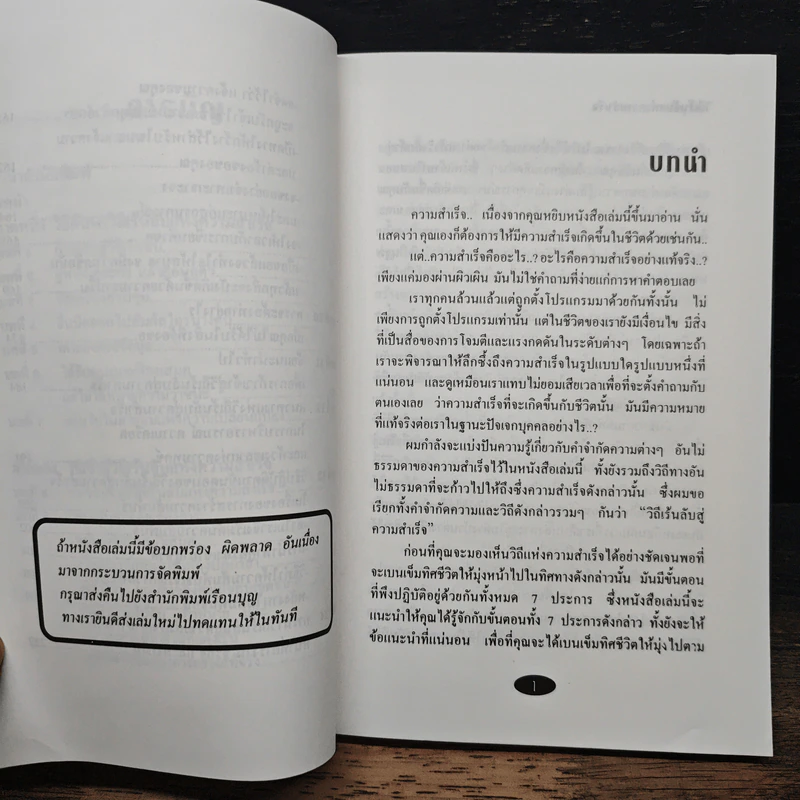 ถ้าหนังสือเล่มนี้มีข้อบกพร่อง ผิดพลาด อันเนื่อง
มาจากกระบวนการจัดพิมพ์
กรุณาส่งคืนไปยังสำนักพิมพ์เรือนบุญ
ทางเรายินดีส่งเล่มใหม่ไปทดแทนให้ในทันที
บทนำ
ความสำเร็จ.. เนื่องจากคุณหยิบหนังสือเล่มนี้ขึ้นมาอ่าน นั่น
แสดงว่า คุณเองก็ต้องการให้มีความสำเร็จเกิดขึ้นในชีวิตด้วยเช่นกัน..
แต่..ความสำเร็จคืออะไร..? อะไรคือความสำเร็จอย่างแท้จริง..?
เพียงแค่มองผ่านผิวเผิน มันไม่ใช่คำถามที่ง่ายแก่การหาคำตอบเลย
เราทุกคนล้วนแล้วแต่ถูกตั้งโปรแกรมมาด้วยกันทั้งนั้น ไม่
เพียงการถูกตั้งโปรแกรมเท่านั้น แต่ในชีวิตของเรายังมีเงื่อนไข มีสิ่ง
ที่เป็นสื่อของการโจมตีและแรงกดดันในระดับต่างๆ โดยเฉพาะถ้า
เราจะพิจารณาให้ลึกซึ้งถึงความสำเร็จในรูปแบบใดรูปแบบหนึ่งที่
แน่นอน และดูเหมือนเราแทบไม่ยอมเสียเวลาเพื่อที่จะตั้งคำถามกับ
ตนเองเลย ว่าความสำเร็จที่จะเกิดขึ้นกับชีวิตนั้น มันมีความหมาย
ที่แท้จริงต่อเราในฐานะปัจเจกบุคคลอย่างไร..?
ผมกำลังจะแบ่งปันความรู้เกี่ยวกับคำจำกัดความต่างๆ อันไม่
ธรรมดาของความสำเร็จไว้ในหนังสือเล่มนี้ ทั้งยังรวมถึงวิถีทางอัน
ไม่ธรรมดาที่จะก้าวไปให้ถึงซึ่งความสำเร็จดังกล่าวนั้น ซึ่งผมขอ
เรียกทั้งคำจำกัดความและวิถีดังกล่าวรวมๆ กันว่า “วิถีเร้นลับสู่
ความสำเร็จ”
ก่อนที่คุณจะมองเห็นวิถีแห่งความสำเร็จได้อย่างชัดเจนพอที่
จะเบนเข็มทิศชีวิตให้มุ่งหน้าไปในทิศทางดังกล่าวนั้น มันมีขั้นตอน
ที่พึงปฏิบัติอยู่ด้วยกันทั้งหมด 7 ประการ ซึ่งหนังสือเล่มนี้จะ
แนะนำให้คุณได้รู้จักกับขั้นตอนทั้ง 7 ประการดังกล่าว ทั้งยังจะให้
ข้อแนะนำที่แน่นอน เพื่อที่คุณจะได้เบนเข็มทิศชีวิตให้มุ่งไปตาม
1